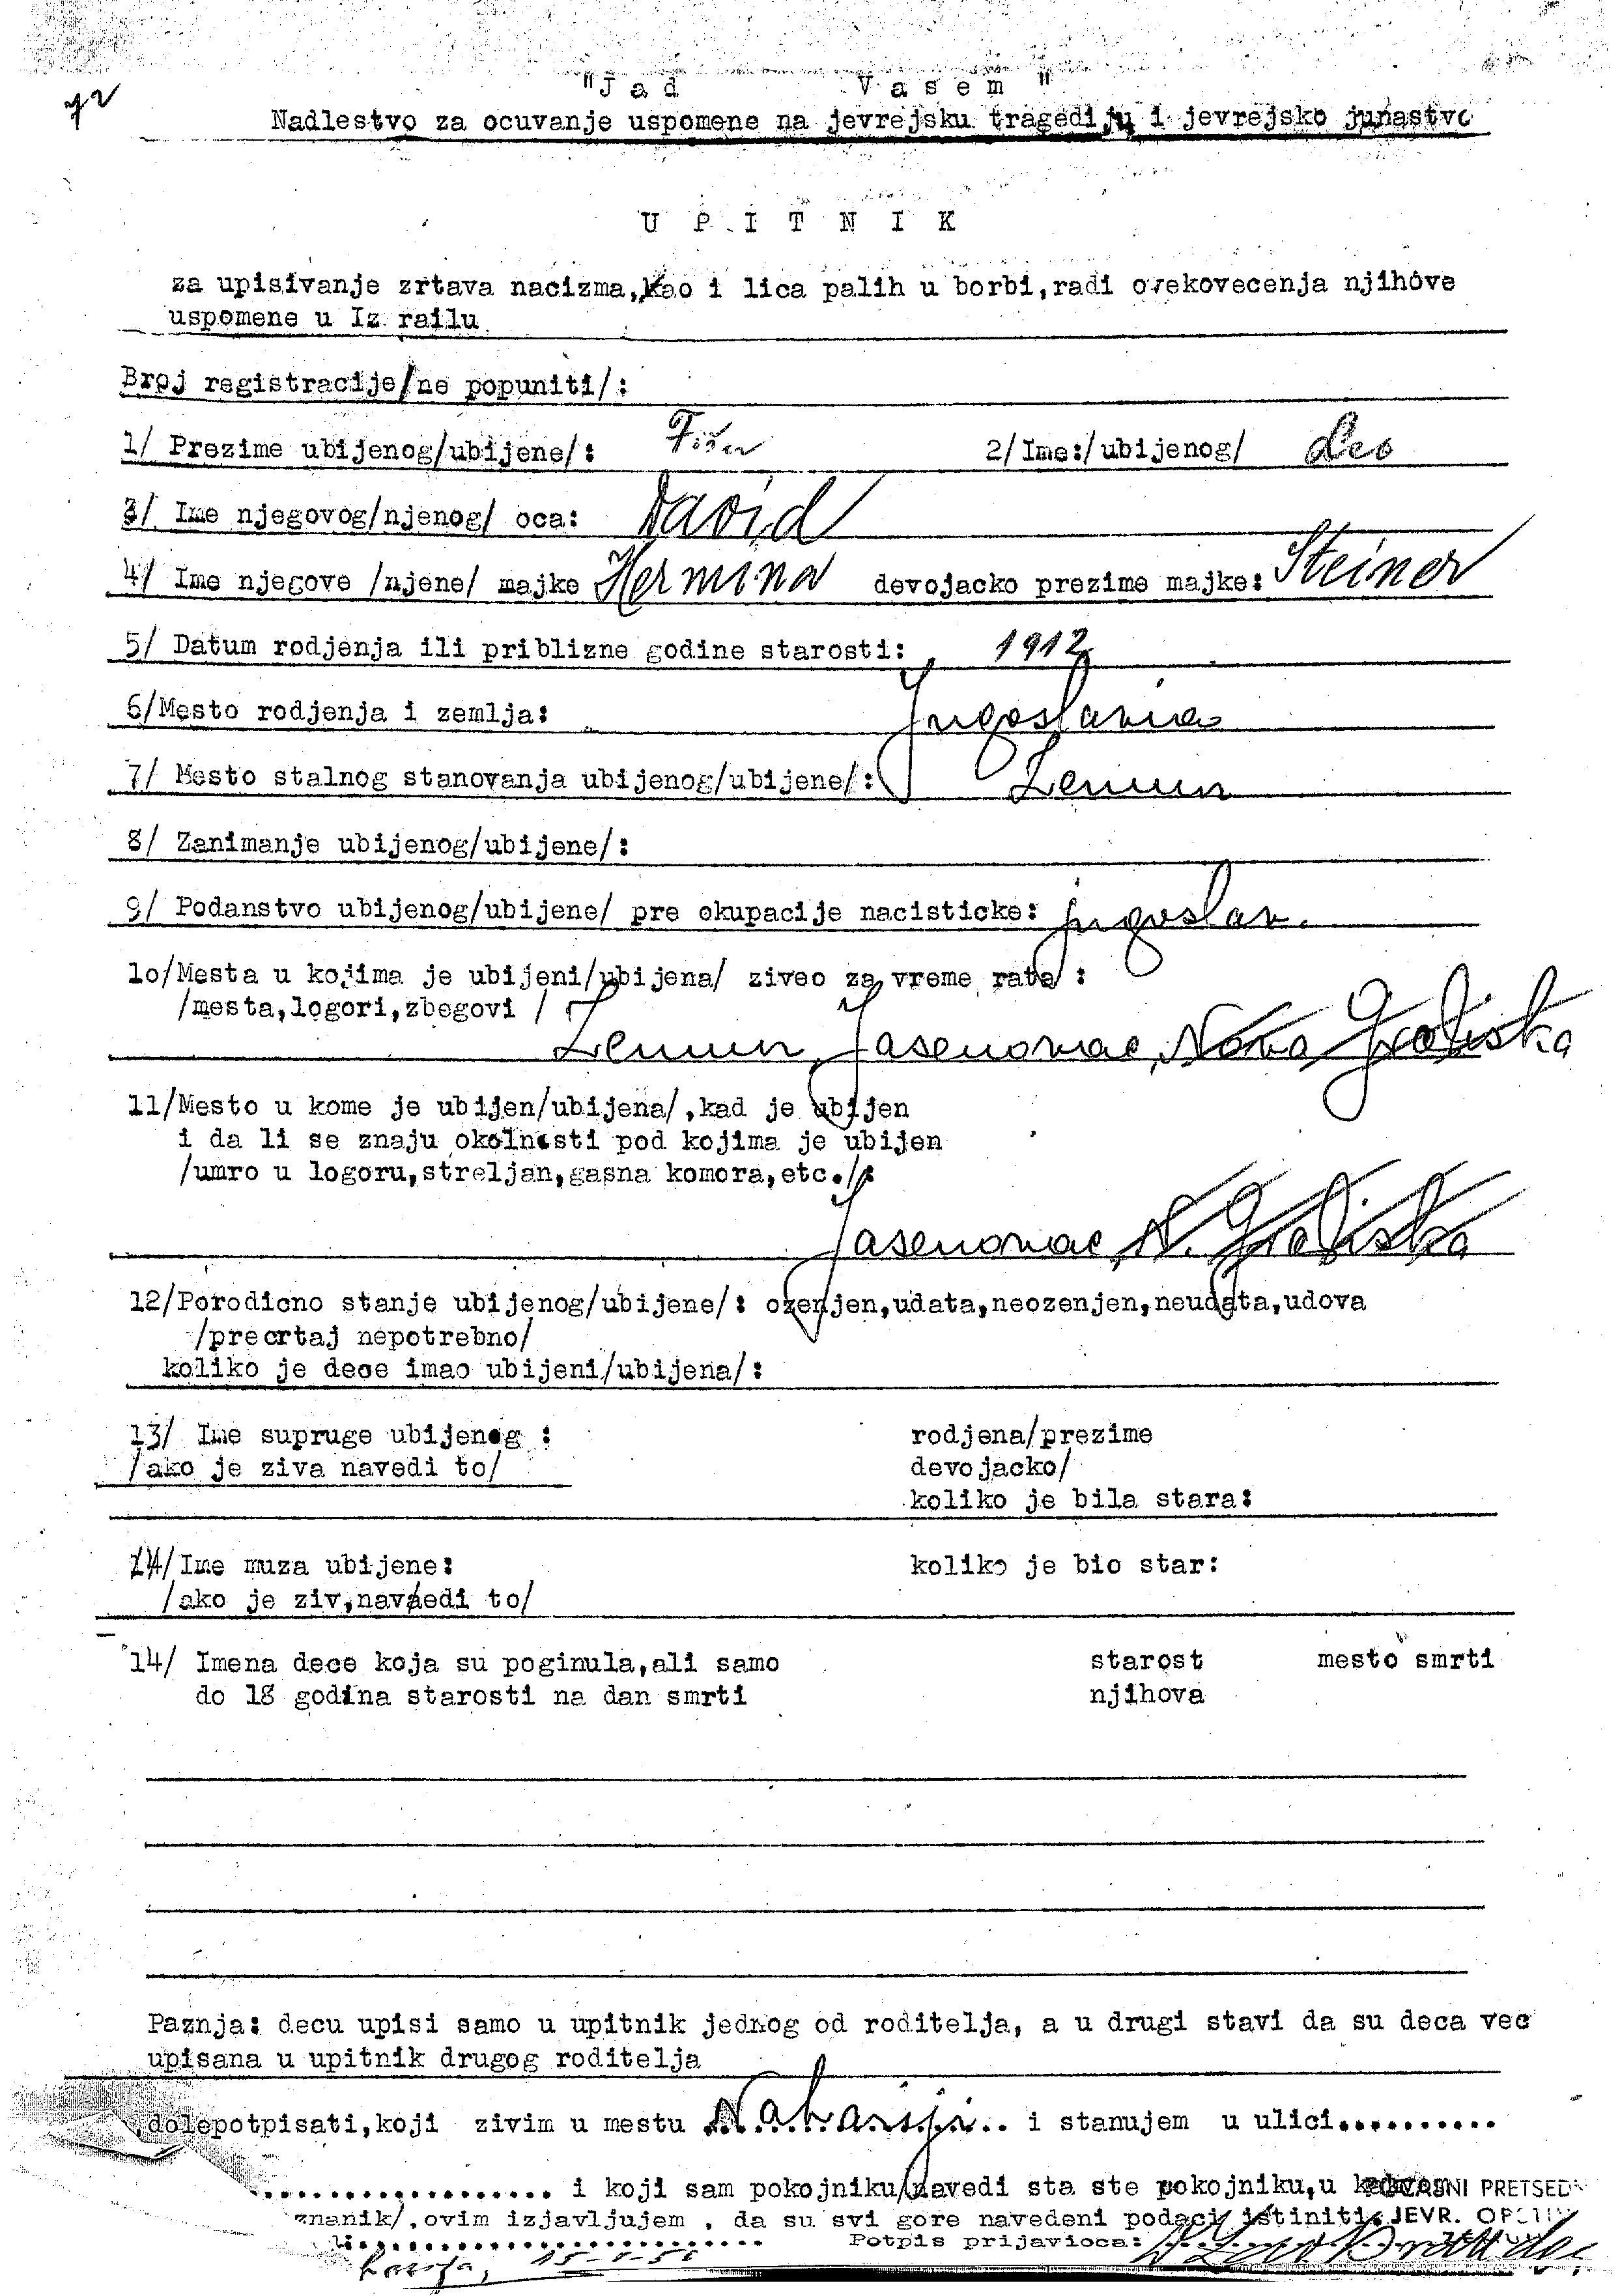 "Jad Vasem"
Nadlestvo za ocuvanje uspomene na jevrejsku tragediju i jevrejsko junastvo
U P I T N I K
za upisivanje zrtava nacizma, kao i lica palih u borbi, radi ovekovecenja njihove
uspomene u Iz railu
Broj registracije/ne popuniti/:
1/ Prezime ubijenog/ubijene/: Fišer 2/Ime:/ubijenog/ Leo
3/ Ime njegovog/njenog/ oca: David
4/ Ime njegove /njene/ majke Hermina devojacko prezime majke: Steiner
5/ Datum rodjenja ili priblizne godine starosti: 1912
6/Mesto rodjenja i zemlja: Jugoslavia
7/ Mesto stalnog stanovanja ubijenog/ubijene/: Zemun
8/ Zanimanje ubijenog/ubijene/:
9/ Podanstvo ubijenog/ubijene/ pre okupacije nacisticke: jugoslav.
10/Mesta u kojima je ubijeni/ubijena/ ziveo za vreme rata/ :
/mesta,logori,zbegovi /
Zemun, Jasenovac, Nova Gradiska
11/Mesto u kome je ubijen/ubijena/,kad je ubijen
i da li se znaju okolnosti pod kojima je ubijen
/umro u logoru,streljan,gasna komora,etc./:
Jasenovac, N. Gradiska
12/Porodicno stanje ubijenog/ubijene/: ozenjen,udata,neozenjen,neudata,udova
/precrtaj nepotrebno/
koliko je dece imao ubijeni/ubijena/:
13/ Ime supruge ubijenog : rodjena/prezime
/ako je ziva navedi to/ devojacko/
koliko je bila stara:
14/Ime muza ubijene: koliko je bio star:
/ako je ziv,navedi to/
14/ Imena dece koja su poginula,ali samo starost mesto smrti
do 18 godina starosti na dan smrti njihova
Paznja: decu upisi samo u upitnik jednog od roditelja, a u drugi stavi da su deca vec
upisana u upitnik drugog roditelja
dolepotpisati,koji zivim u mestu Naharija.. i stanujem u ulici..........
.................. i koji sam pokojniku/navedi sta ste pokojniku,u
POČASNI PRETSED
znanik/,ovim izjavljujem , da su svi gore navedeni podaci istiniti. JEVR.
Potpis prijavioca: